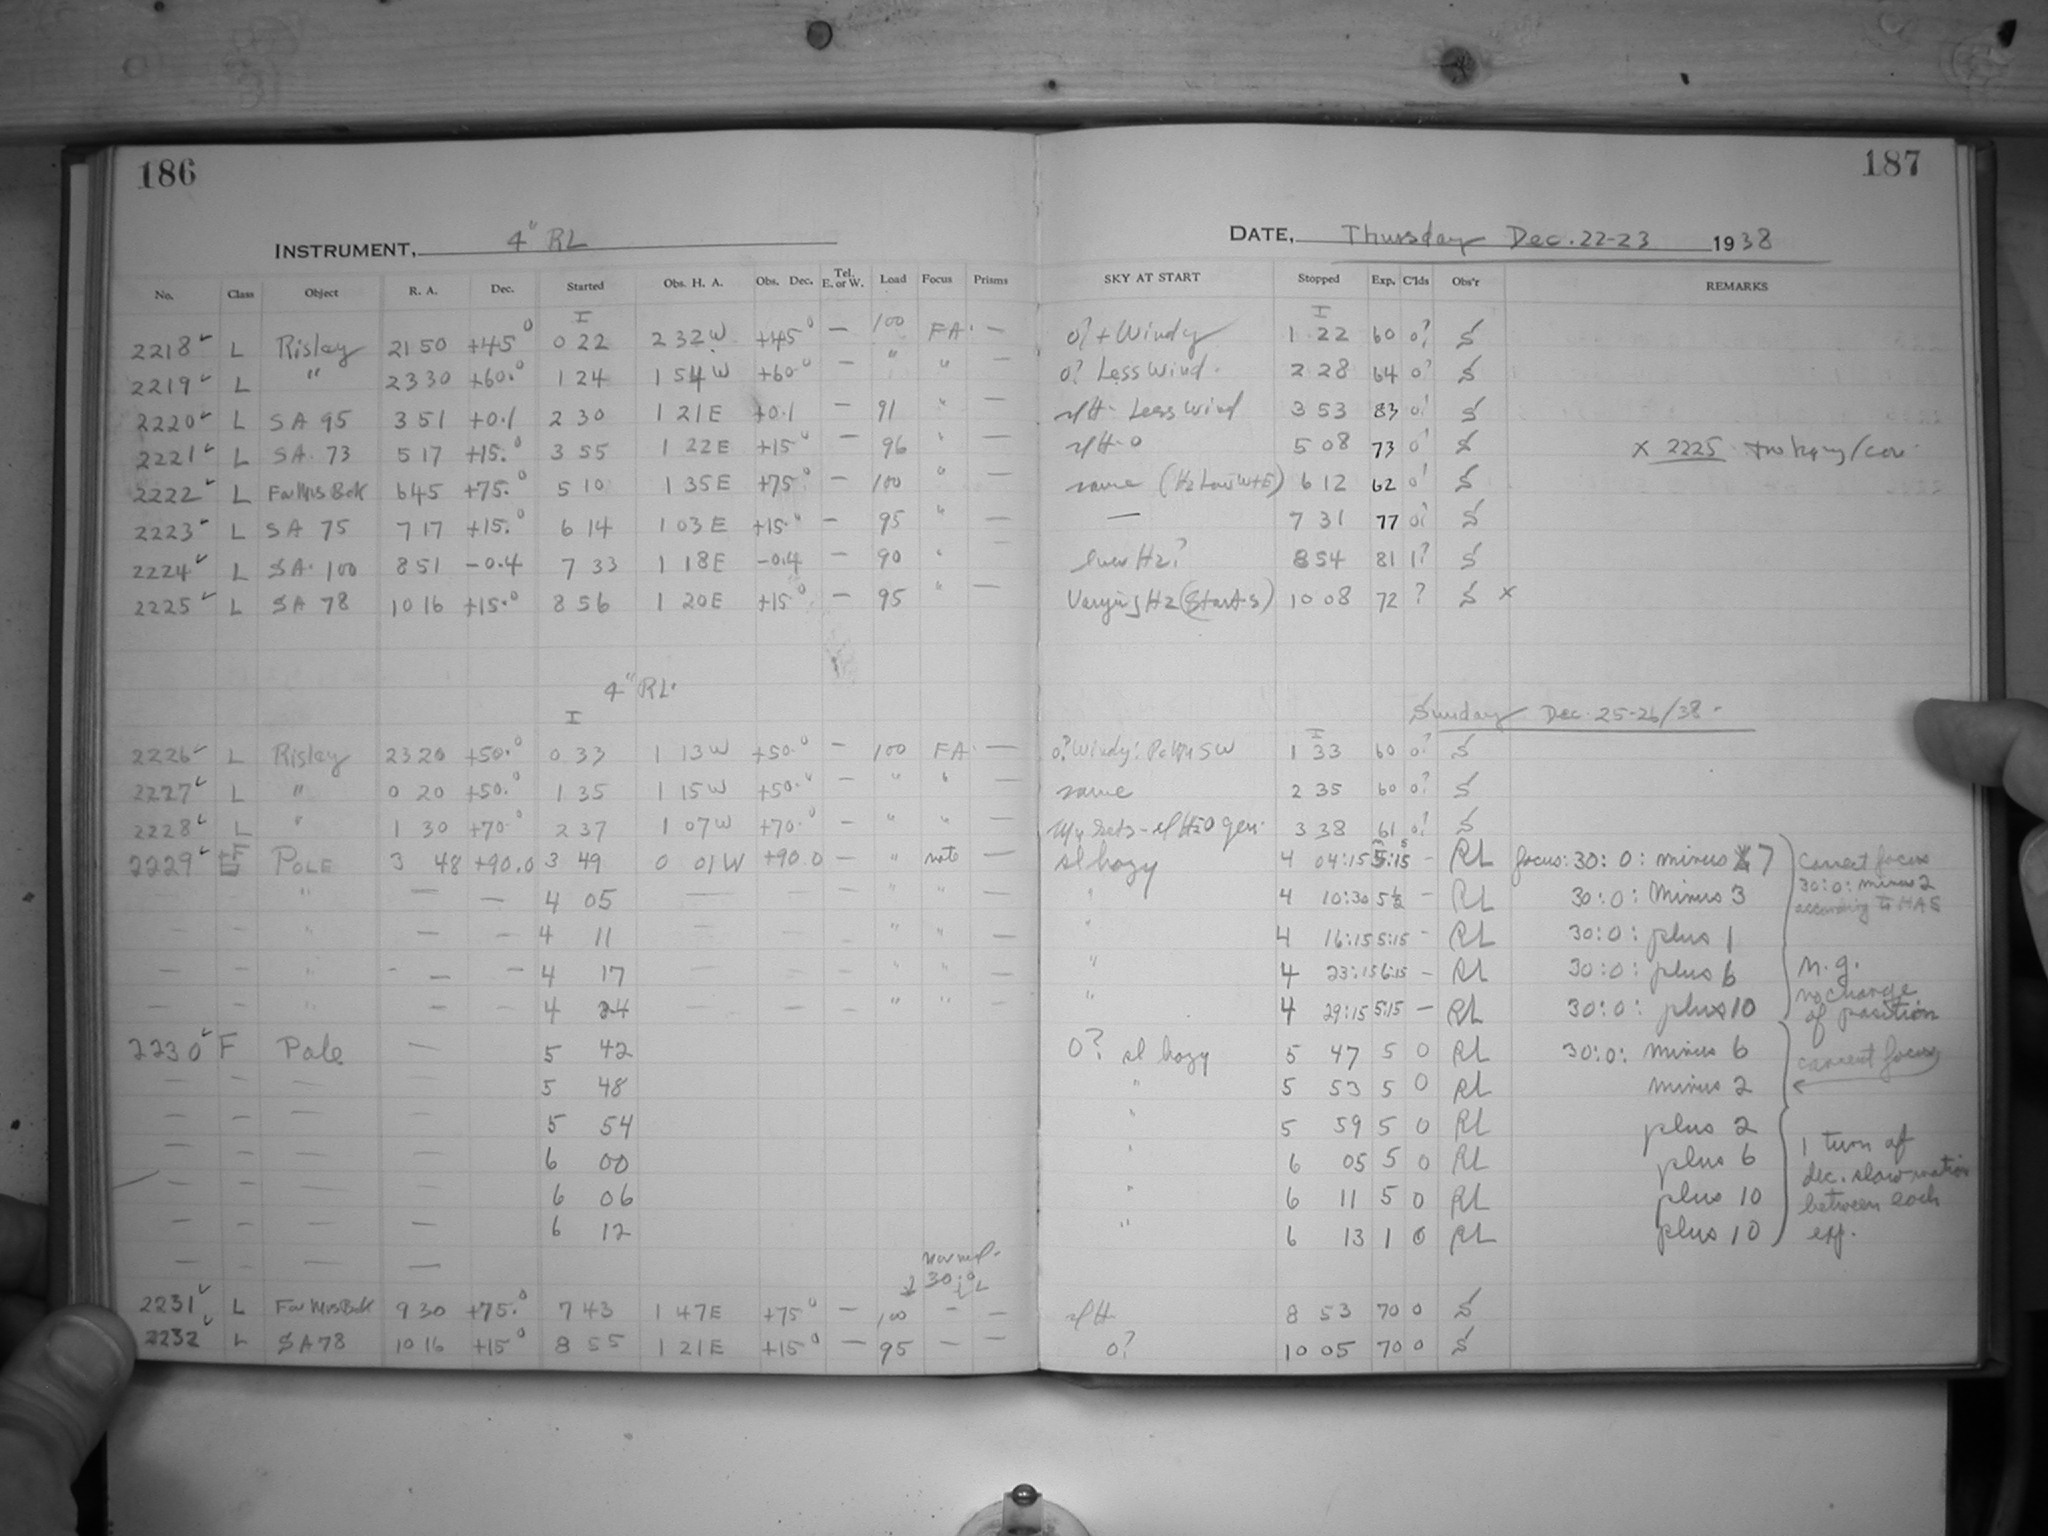 186
187
INSTRUMENT, 4" RL
DATE, Thursday Dec. 22-23 1938
No. Class Object R. A. Dec. Started Obs. H. A. Obs. Dec. Tel. E. or W. Load Focus Prisms SKY AT START Stopped Exp. C'lds Obs'r REMARKS
2218 L Risley 21 50 +45° 0 22 2 32 W +45° — 100 FA. — 0? + Windy 1 22 60 0? S
2219 L " 23 30 +60.° 1 24 1 54 W +60.° — " " — 0? Less Wind. 2 28 64 0? S
2220 L SA 95 3 51 +0.1 2 30 1 21 E +0.1 — 91 " — Less Wind 3 53 83 0? S
2221 L SA. 73 5 17 +15.° 3 55 1 22 E +15° — 96 " — 5 08 73 0? S x 2225
2222 L For Mrs Bok 6 45 +75.° 5 10 1 35 E +75° — 100 " — same 6 12 62 0? S
2223 L SA 75 7 17 +15.° 6 14 1 03 E +15.° — 95 " — — 7 31 77 0? S
2224 L SA. 100 8 51 -0.4 7 33 1 18 E -0.4 — 90 " — Hz? 8 54 81 1? S
2225 L SA 78 10 16 +15.° 8 56 1 20 E +15° — 95 " — Varying Hz (Starts) 10 08 72 ? S x
4" RL.
Sunday Dec. 25-26/38.
2226 L Risley 23 20 +50.° 0 33 1 13 W +50.° — 100 FA — 0? Windy: SW 1 33 60 0? S
2227 L " 0 20 +50.° 1 35 1 15 W +50.° — " " — same 2 35 60 0? S
2228 L " 1 30 +70.° 2 37 1 07 W +70.° — " " — 3 38 61 0? S
2229 F POLE 3 48 +90.0 3 49 0 01 W +90.0 — " note — sl hazy 4 04:15 5:15 — RL focus: 30: 0: minus 7
correct focus
30:0: minus 2
according to HAS
" — — 4 05 — — — " " — " 4 10:30 5½ — RL 30:0: Minus 3
" — — 4 11 — — — " " — " 4 16:15 5:15 — RL 30:0: plus 1
" — — 4 17 — — — " " — " 4 23:15 6:15 — RL 30:0: plus 6
" — — 4 24 — — — " " — " 4 29:15 5:15 — RL 30:0: plus 10
n.g.
no change
of position
2230 F Pole — 5 42 0? sl hazy 5 47 5 0 RL 30:0: minus 6
— — — — 5 48 " 5 53 5 0 RL minus 2
correct focus
— — — — 5 54 " 5 59 5 0 RL plus 2
— — — — 6 00 " 6 05 5 0 RL plus 6
— — — — 6 06 " 6 11 5 0 RL plus 10
— — — — 6 12 " 6 13 1 0 RL plus 10
1 turn of
dec. slow motion
between each
exp.
normal.
2231 L For Mrs Bok 9 30 +75.° 7 43 1 47 E +75° — 100 — — 8 53 70 0 S
2232 L SA 78 10 16 +15° 8 55 1 21 E +15° — 95 — — 0? 10 05 70 0 S